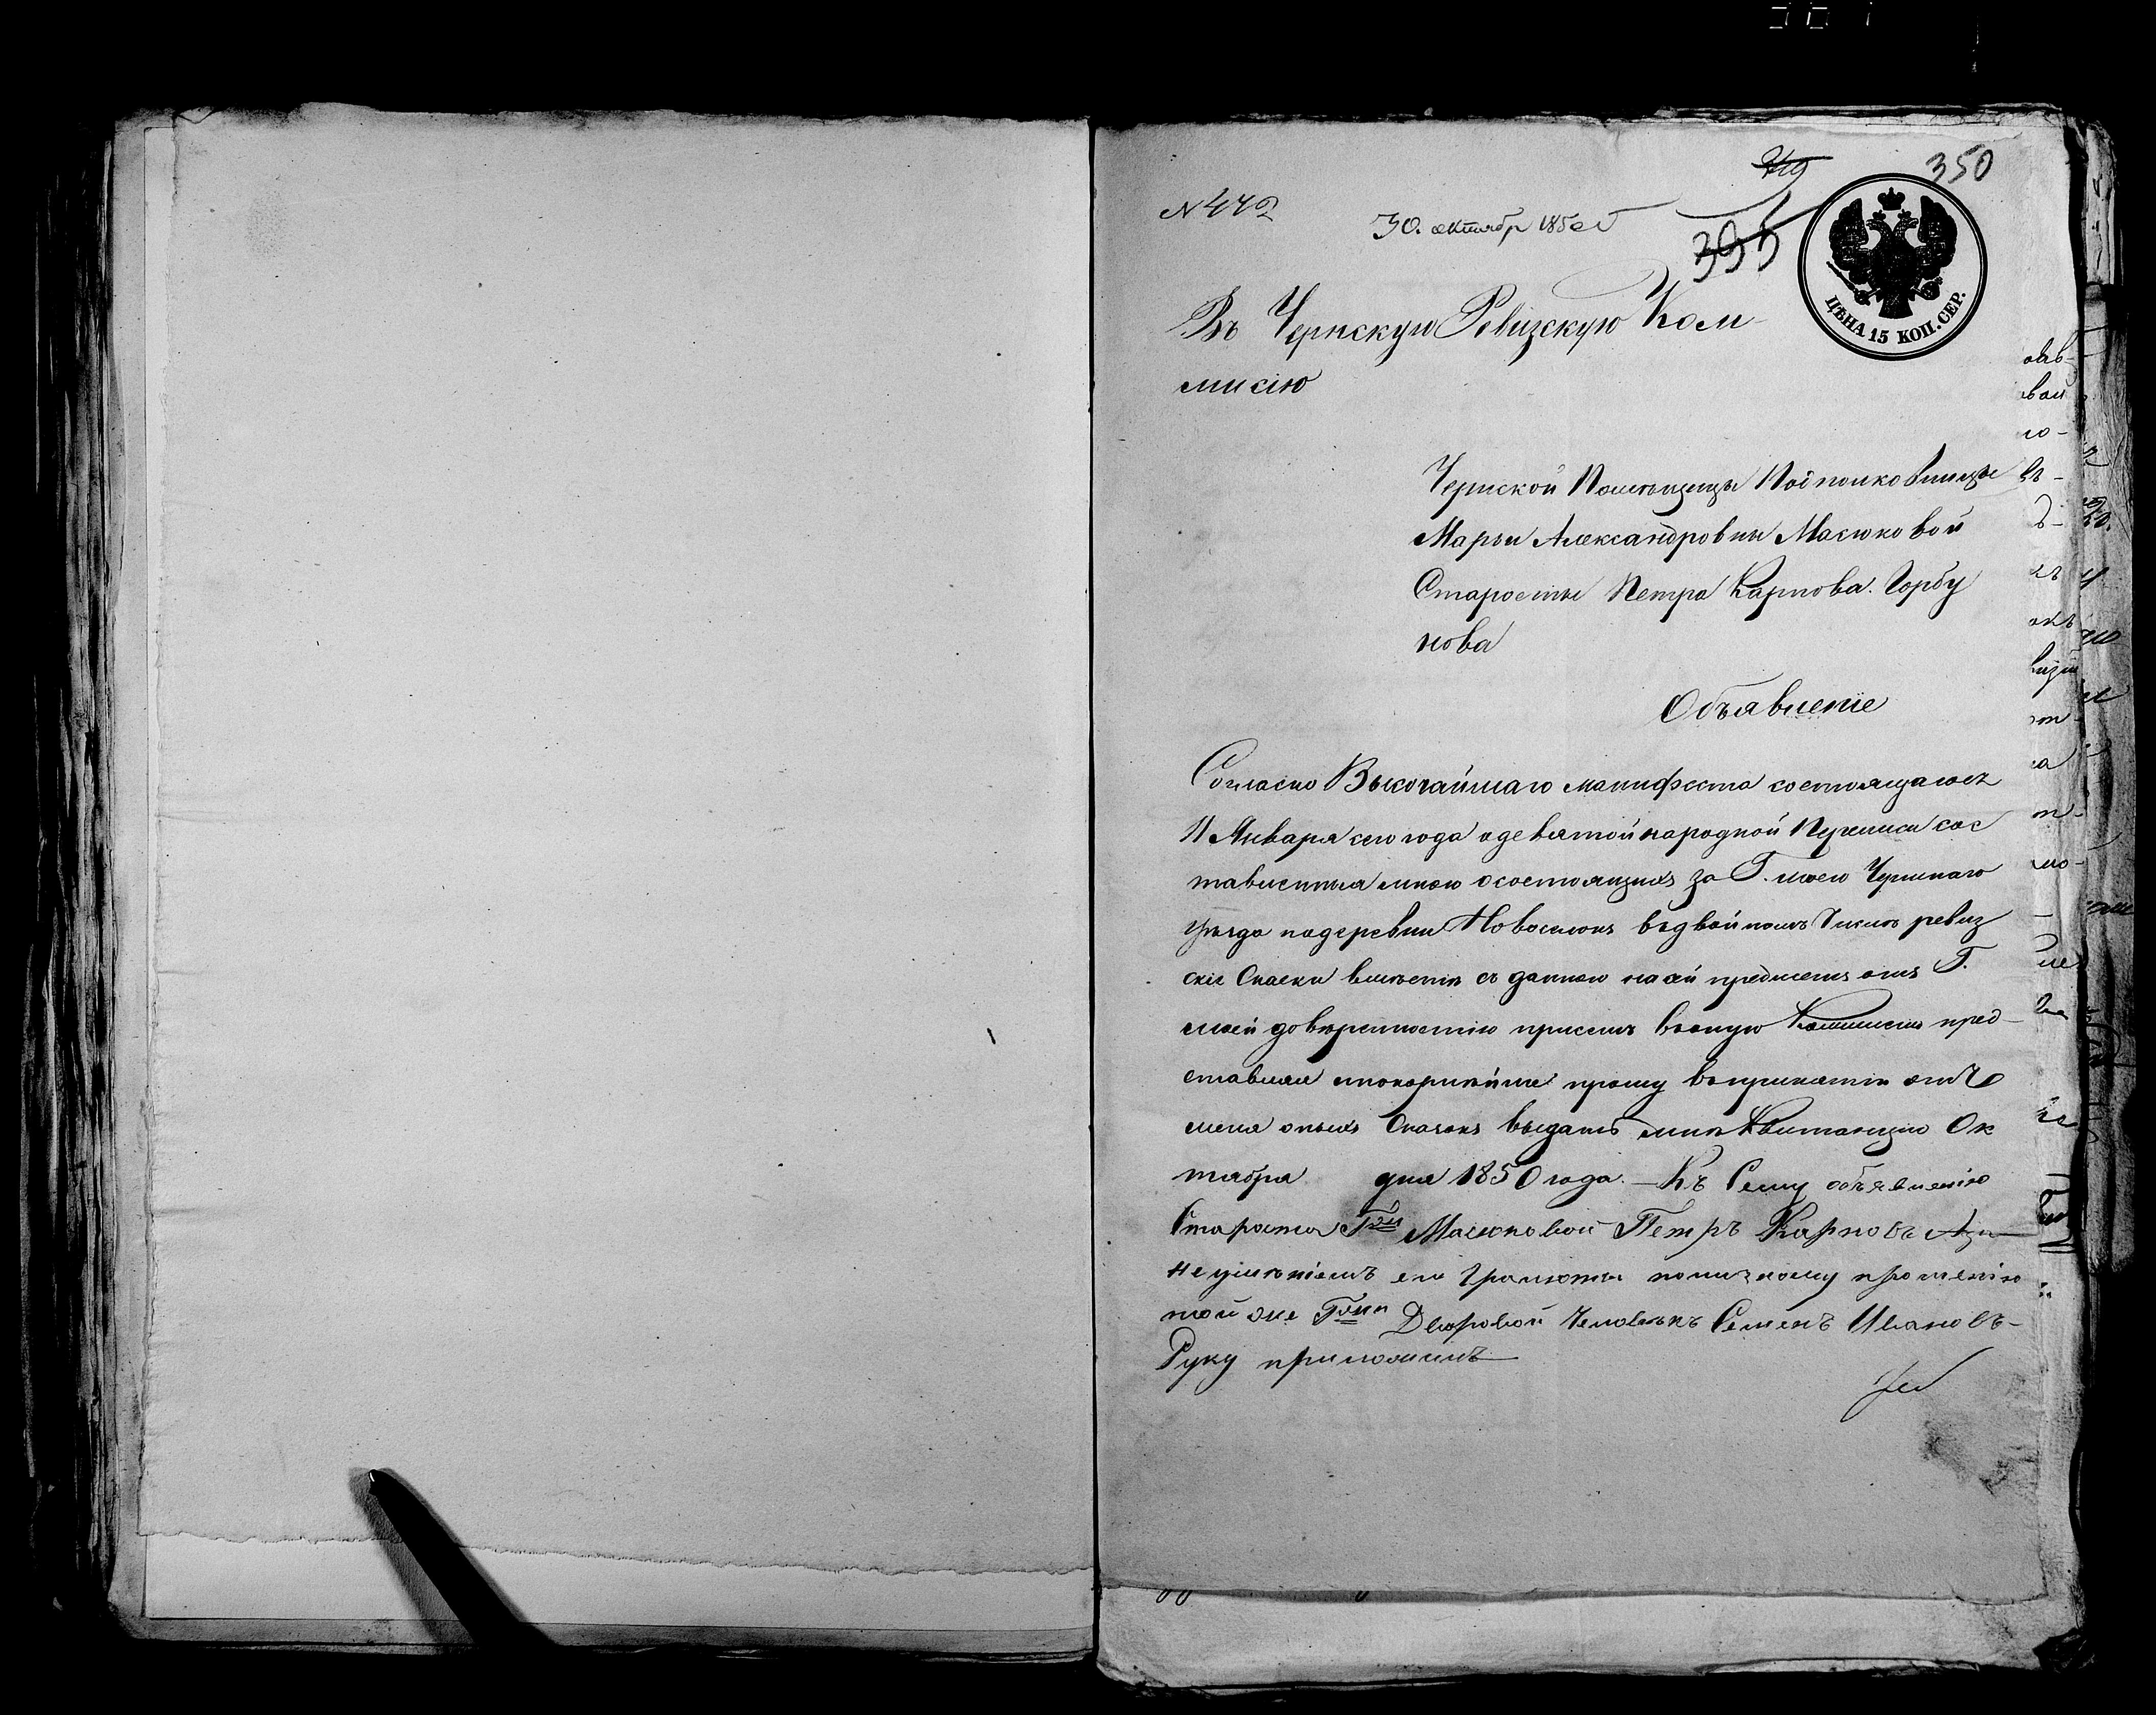 350
N 442
30. октябр 1850 г
395
ЦѢНА 15 КОП. СЕР.
Въ Чернскую Ревизскую Ком-
мисію
Чернской Помѣщицы Подполковницы
Марьи Александровны Масюковой
Старосты Петра Карпова. Горбу
нова
Объявленіе
Согласно Высочайшаго манифеста состоящагося
11 Января сего года о девятой народной Переписи сос
тавленныя мною о состоящихъ за Г. моею Чернскаго
уѣзда въ деревни Новоселокъ въ двойномъ числѣ ревиз
скіе Сказки вмѣстѣ съ данною на сей предметъ отъ Г.
моей довѣренностію при семъ въ оную Коммисію пред-
ставляя и покорнѣйше прошу по принятіи отъ
меня оныхъ Сказокъ выдать мнѣ Квитанцію Ок
тября дня 1850 года. — Къ Сему объявленію
Староста Г-жи Масюковой Петръ Карповъ А за
неумѣніемъ его Грамоты по личному прошенію
той же Г-жи Дворовой Человѣкъ Семенъ Ивановъ-
Руку приложилъ